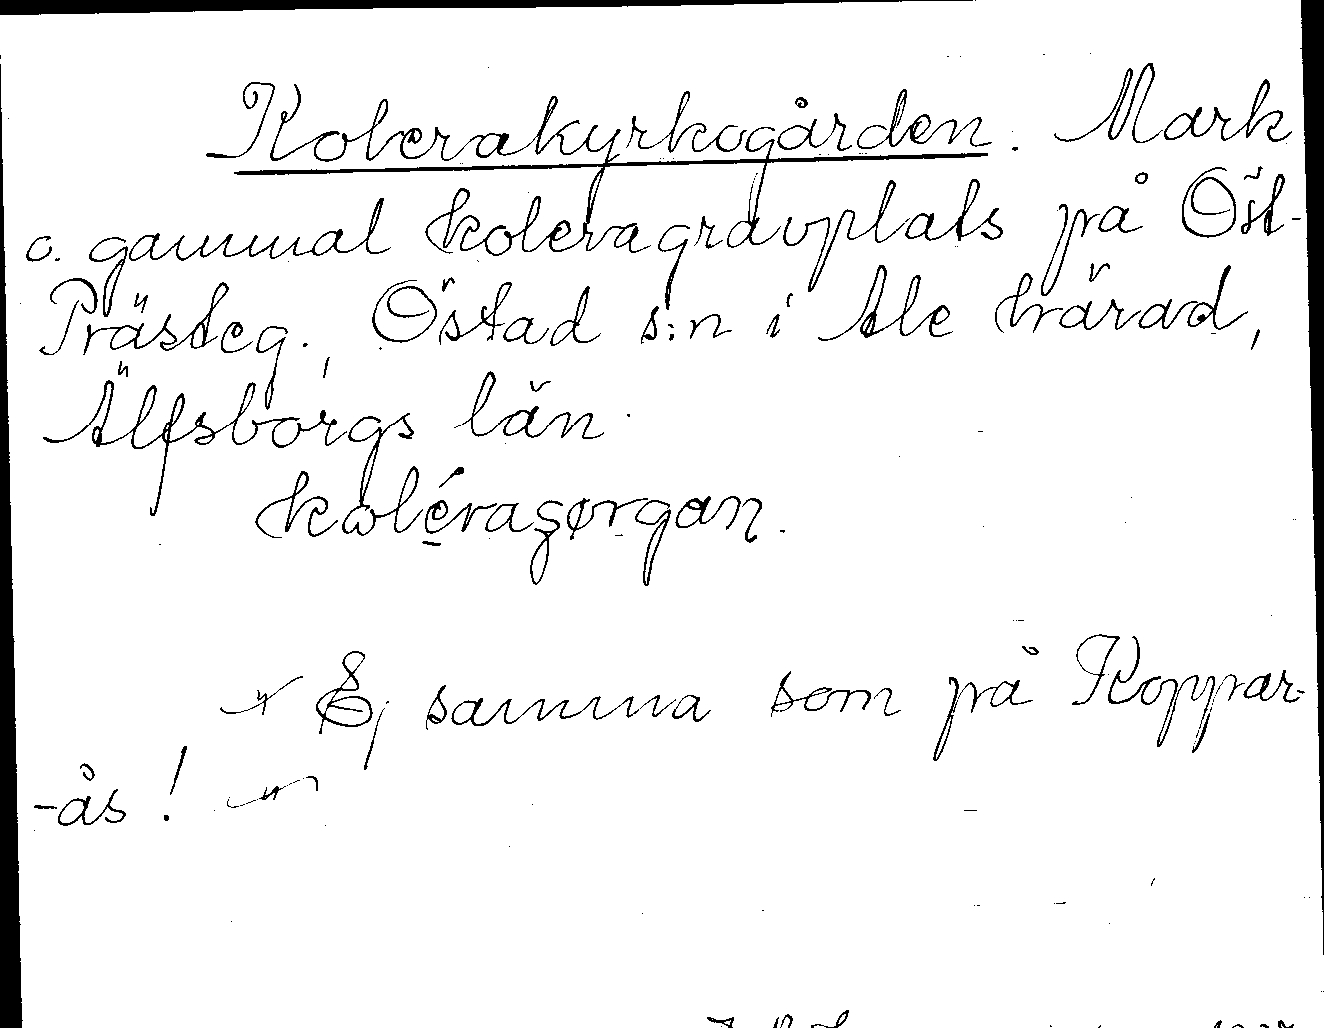 Kolerakyrkogården. Mark
o. gammal koleragravplats på Öst-
Prästeg., Östad s:n i Ale härad,
Älfsborgs län.
Ej samma som på Koppar-
-ås!